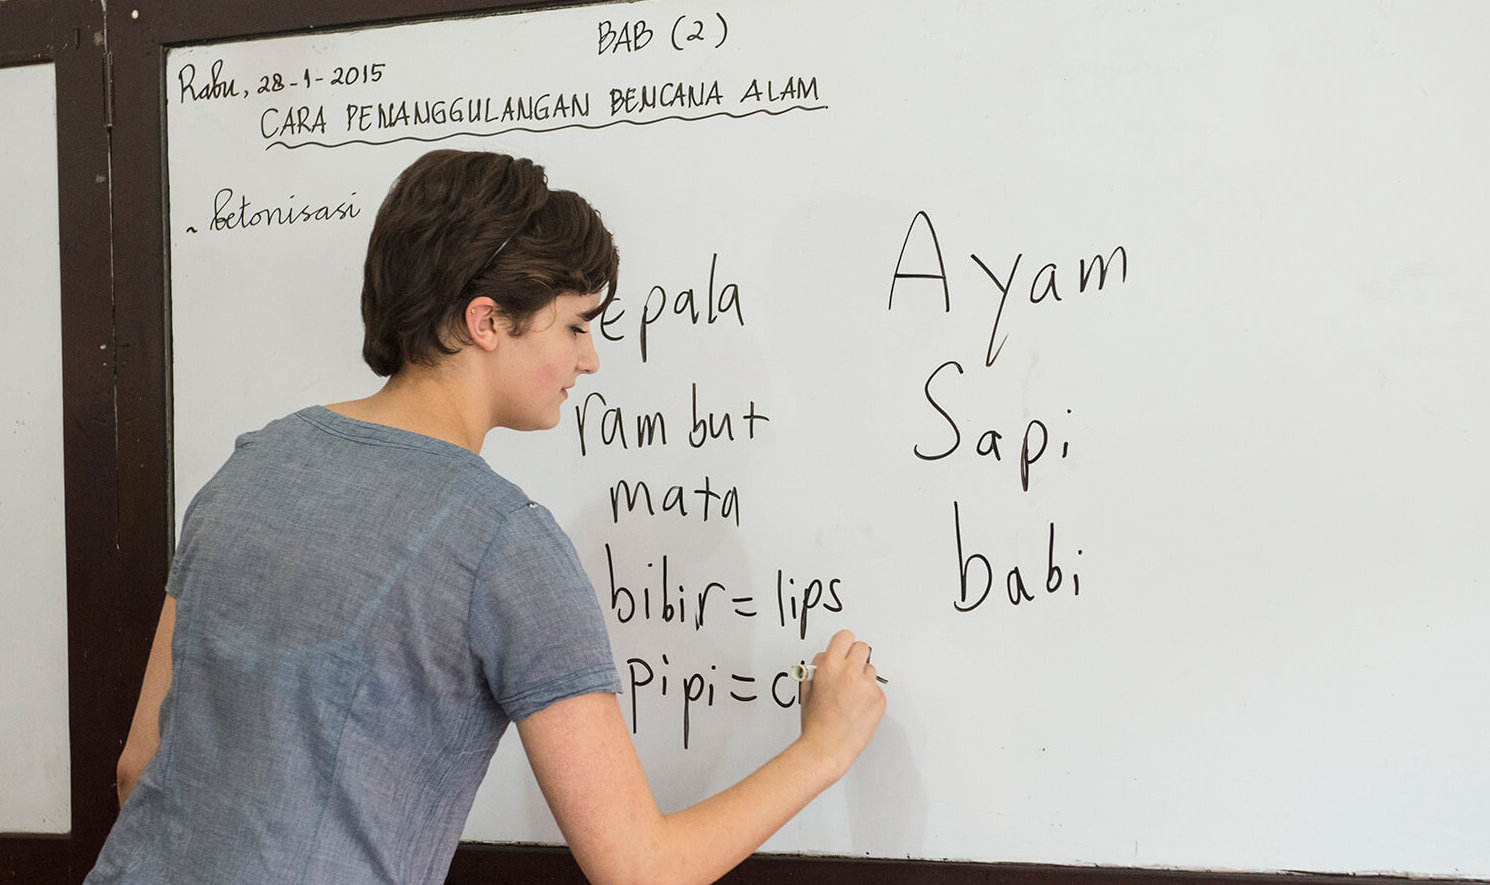 BAB (2)
Rabu, 28-1-2015
CARA PENANGGULANGAN BENCANA ALAM
~ betonisasi
epala
rambut
mata
bibir = lips
pipi = c
Ayam
Sapi
babi